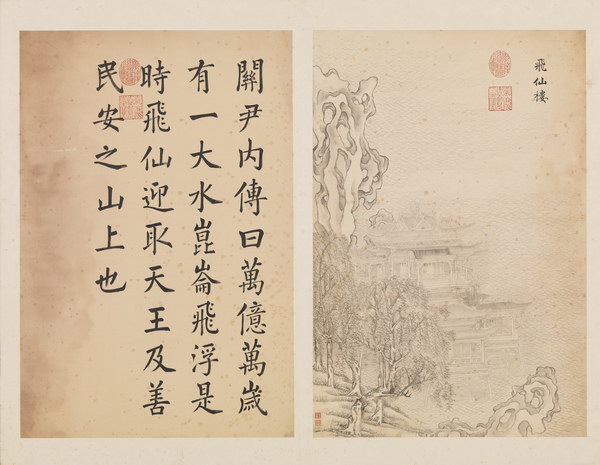 飛仙樓
關尹内傳曰萬億萬歲
有一大水崑崙飛浮是
時飛仙迎取天王及善
民安之山上也